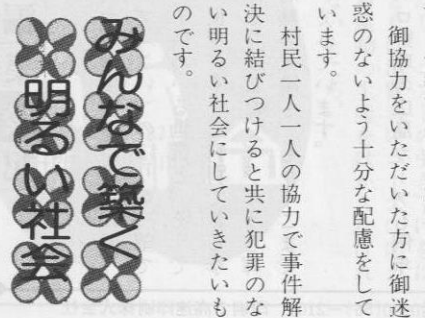 御協力をいただいた方に御迷
惑のないよう十分な配慮をして
います。
村民一人一人の協力で事件解
決に結びつけると共に犯罪のな
い明るい社会にしていきたいも
のです。
みんなで築く
明るい社会